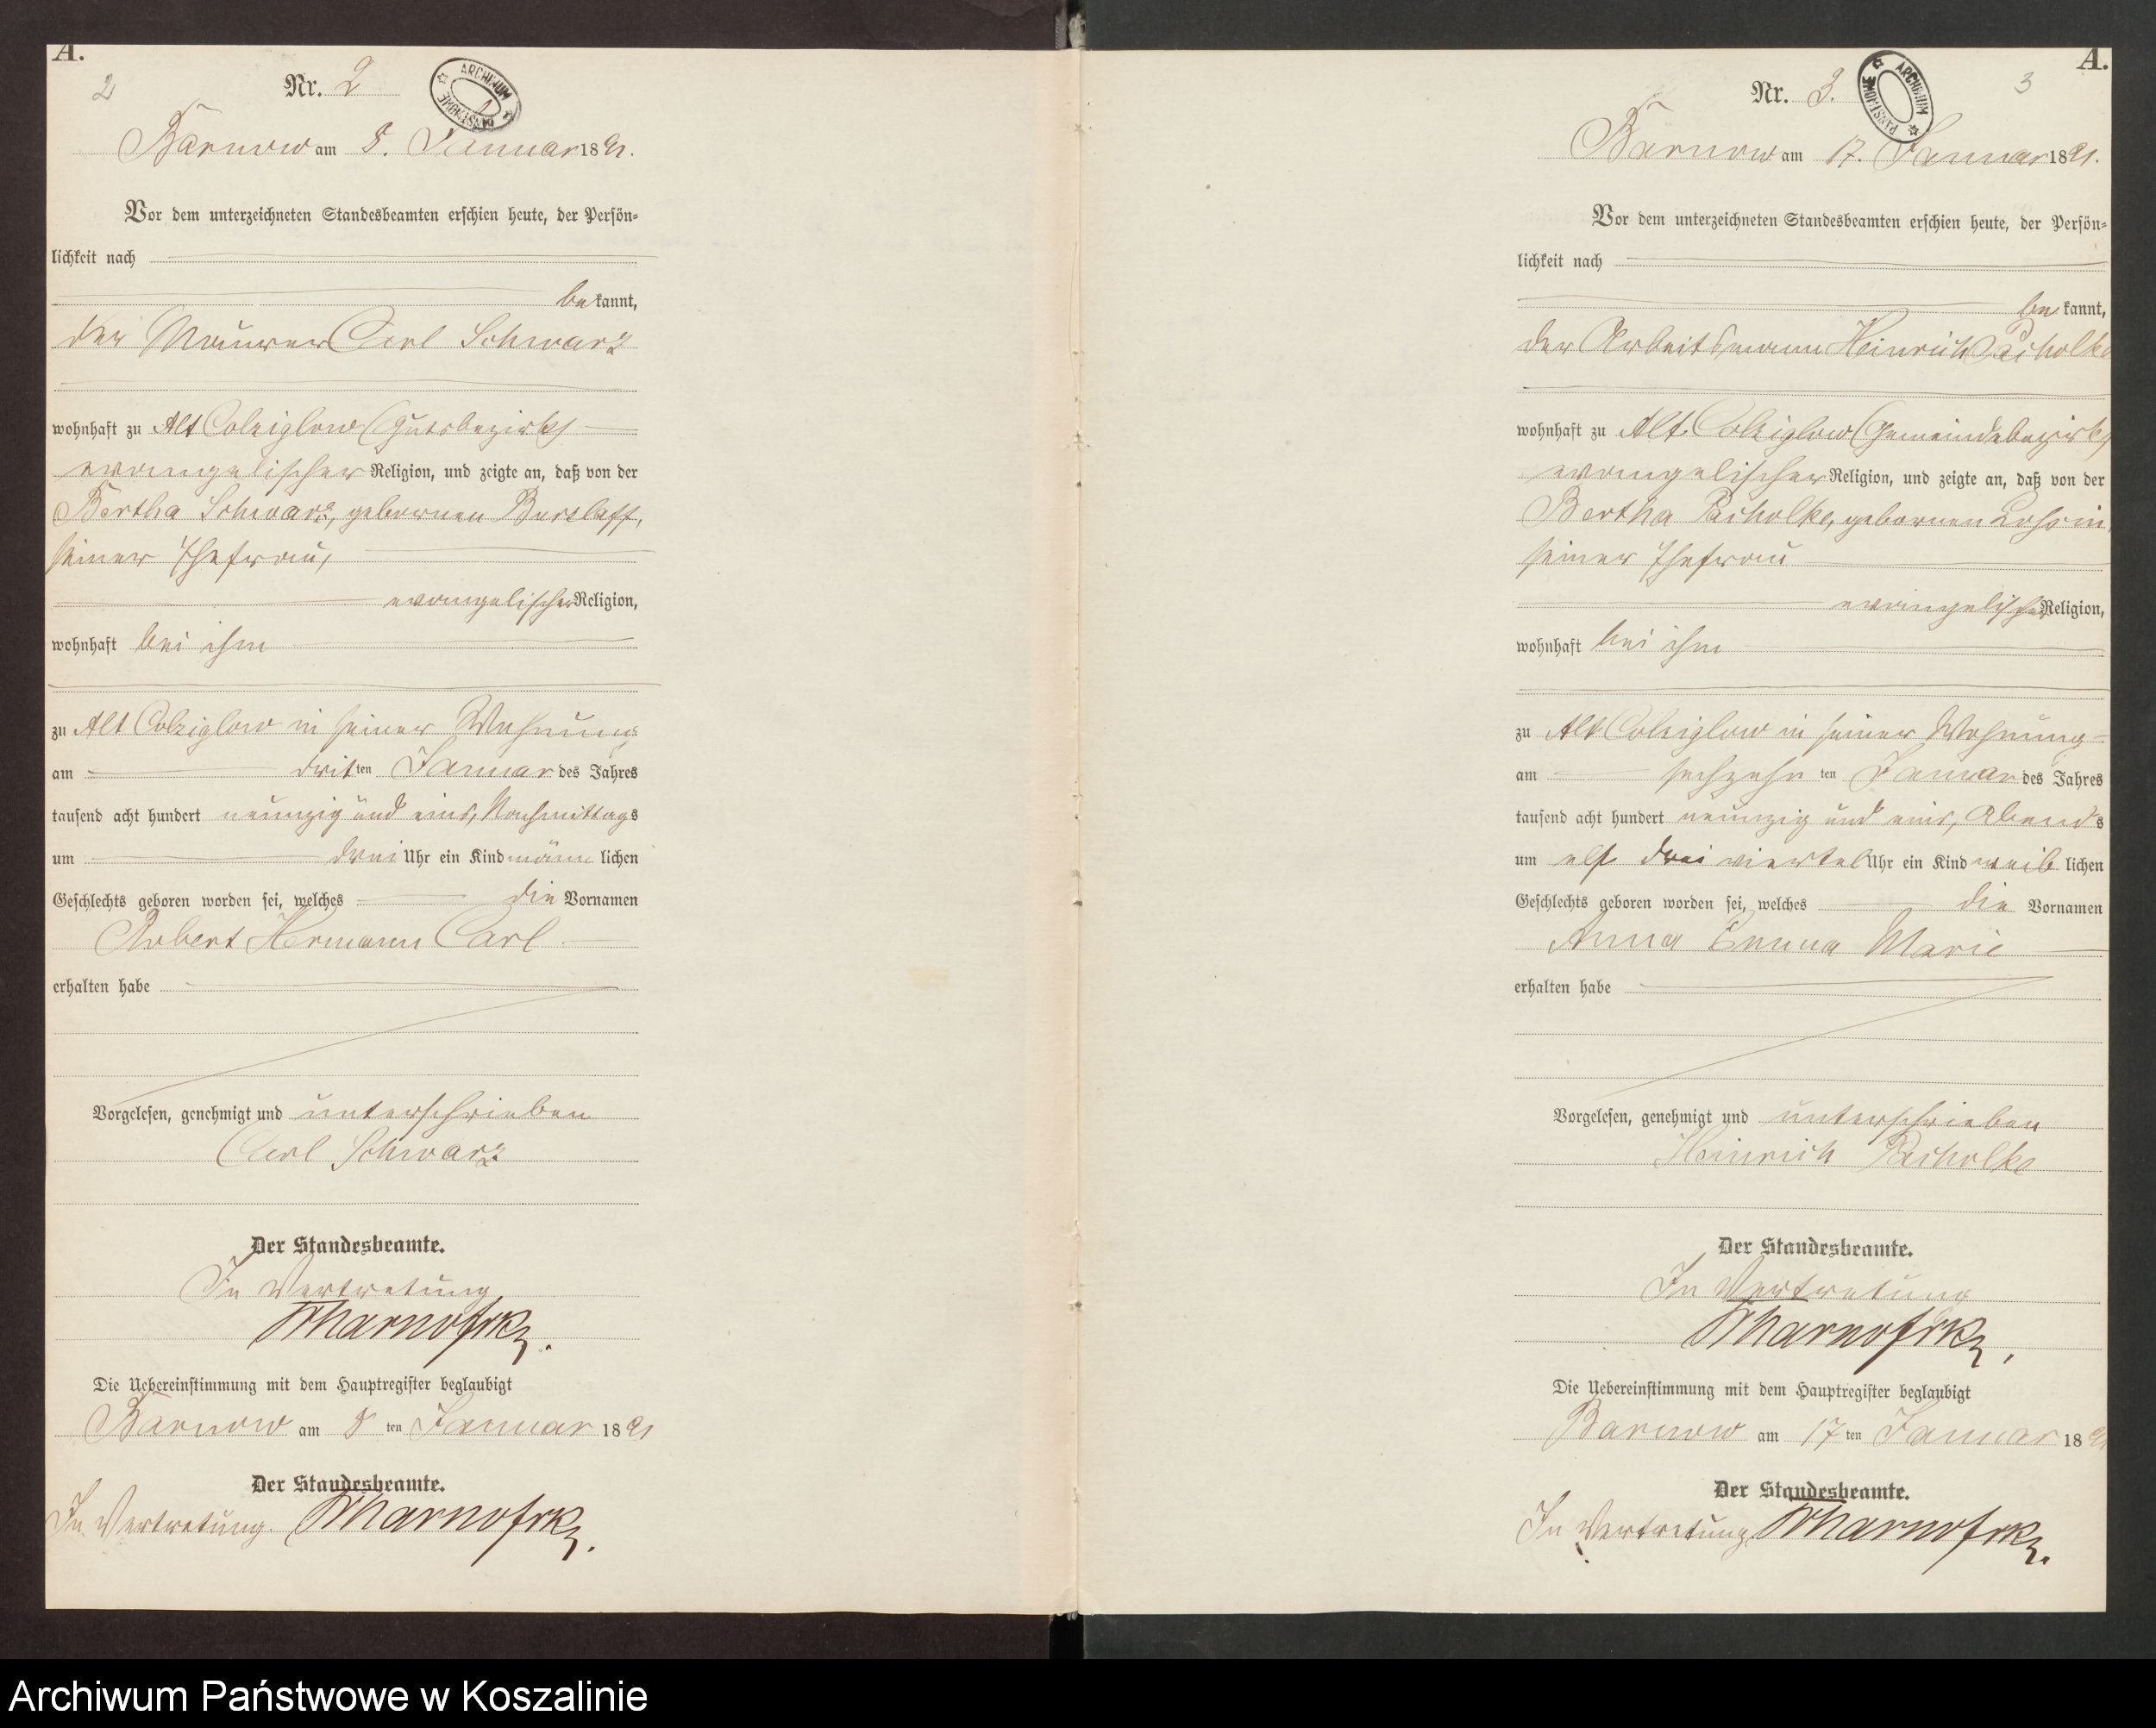 A.
2
Nr. 2
ARCHIWUM PAŃSTWOWE
Barnow am 8. Januar 1891.
Vor dem unterzeichneten Standesbeamten erschien heute, der Persön-
lichkeit nach
bekannt,
der Maurer Carl Schwarz
wohnhaft zu Alt Colziglow (Gutsbezirk)
evangelischer Religion, und zeigte an, daß von der
Bertha Schwarz, gebornen Burzlaff,
seiner Ehefrau,
evangelischer Religion,
wohnhaft bei ihm
zu Alt Colziglow in seiner Wohnung
am dritten Januar des Jahres
tausend acht hundert neunzig und eins, Nachmittags
um drei Uhr ein Kind männlichen
Geschlechts geboren worden sei, welches die Vornamen
Robert Hermann Carl
erhalten habe
Vorgelesen, genehmigt und unterschrieben
Carl Schwarz
Der Standesbeamte.
In Vertretung
Die Uebereinstimmung mit dem Hauptregister beglaubigt
Barnow am 8 ten Januar 1891
Der Standesbeamte.
In Vertretung.
A.
3
Nr. 3.
ARCHIWUM PAŃSTWOWE
Barnow am 17. Januar 1891.
Vor dem unterzeichneten Standesbeamten erschien heute, der Persön-
lichkeit nach
bekannt,
der Arbeitsmann Heinrich Pacholke
wohnhaft zu Alt Colziglow (Gemeindebezirk)
evangelischer Religion, und zeigte an, daß von der
Bertha Pacholke, gebornen Lossin
seiner Ehefrau
evangelischer Religion,
wohnhaft bei ihm
zu Alt Colziglow in seiner Wohnung
am sechzehn ten Januar des Jahres
tausend acht hundert neunzig und eins, Abends
um elf drei viertel Uhr ein Kind weiblichen
Geschlechts geboren worden sei, welches die Vornamen
Anna Emma Marie
erhalten habe
Vorgelesen, genehmigt und unterschrieben
Heinrich Pacholke
Der Standesbeamte.
In Vertretung
Die Uebereinstimmung mit dem Hauptregister beglaubigt
Barnow am 17 ten Januar 1891
Der Standesbeamte.
In Vertretung
Archiwum Państwowe w Koszalinie